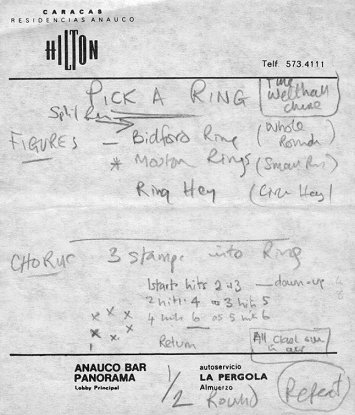 CARACAS
RESIDENCIAS ANAUCO
HILTON
Telf. 573.4111
PICK A RING
Split Ring
FIGURES – Bidford Ring (Whole Round)
* Morton Rings (Small
Ring Hey (Circ Hey)
CHORUS 3 stamps into Ring
1 start hits 2 → 3 — down-up
2 hits 4 as 3 hits 5
4 hits 6 as 5 hits 6
Return
All Clash
in air
ANAUCO BAR
PANORAMA
Lobby Principal
autoservicio
LA PERGOLA
Almuerzo
1/2 Round
Repeat